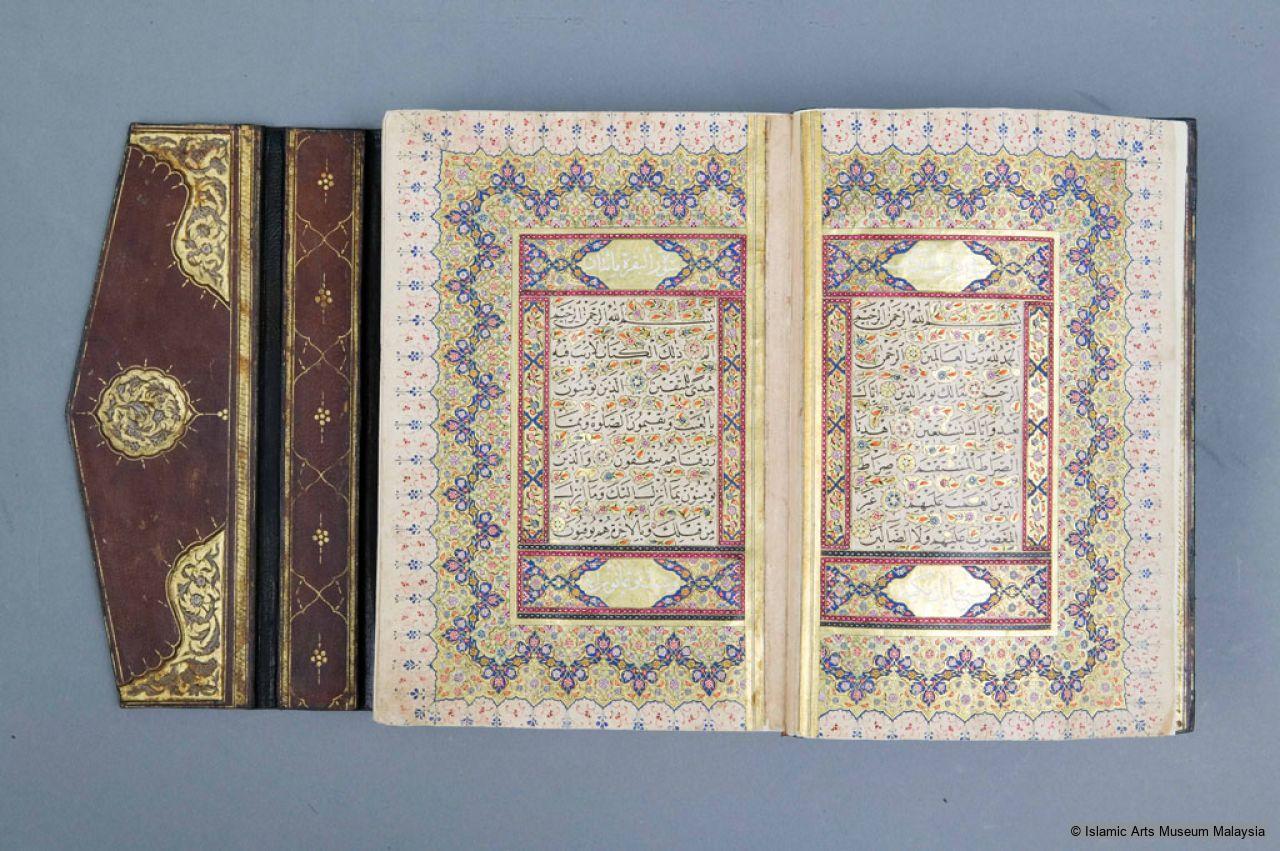 بسم الله الرحمن الرحيم
الحمد لله رب العالمين الرحمن
الرحيم مالك يوم الدين اياك
نعبد واياك نستعين اهدنا
الصراط المستقيم صراط
الذين انعمت عليهم غير
المغضوب عليهم ولا الضالين
سورة البقرة
بسم الله الرحمن الرحيم
الم ذلك الكتاب لا ريب فيه
هدى للمتقين الذين يؤمنون
بالغيب ويقيمون الصلوة ومما
رزقناهم ينفقون والذين
يؤمنون بما انزل اليك وما انزل
من قبلك وبالاخرة هم يوقنون
© Islamic Arts Museum Malaysia